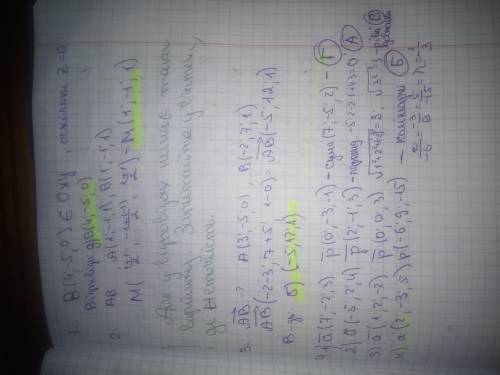 1. B(4;-5;0) ∈ Oxy, оскільки z=0
Відповідь: B(4;-5;0)
2. AB A(1;-1;1), B(1;-1;1)
M(1+1/2; -1+(-1)/2; 1+1/2) = M(1;-1;1)
Але у відповідях немає такого
варіанту. Запитайте у вчителя,
де
3. AB-? A(3;-5;0), B(-2;7;1)
AB(-2-3; 7+5; 1-0) = AB(-5;12;1)
В-дь Б) (-5;12;1)
4. 1) a(7;-2;3) p(0;-3;-1) - сума (7;-5;2) - Г
2) a(-5;2;4) p(2;-1;3) - -5·2-2·1+43=0 А
3) a(1;2;-2) p(0;0;3) √1²+2²+2²=3; √3²=3 - рівні В
4) a(2;-3;5) p(-6;9;-15) - колінеарні Б
2/-6 = -3/9 = 5/-15 = -1/3